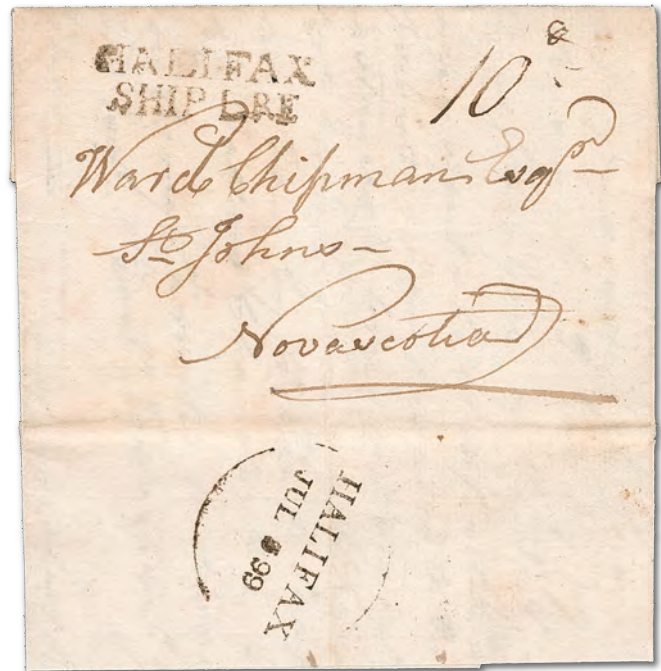 HALIFAX
SHIP LRE
10
Ward Chipman Esqr
St Johns
Novascotia
HALIFAX
JUL 99